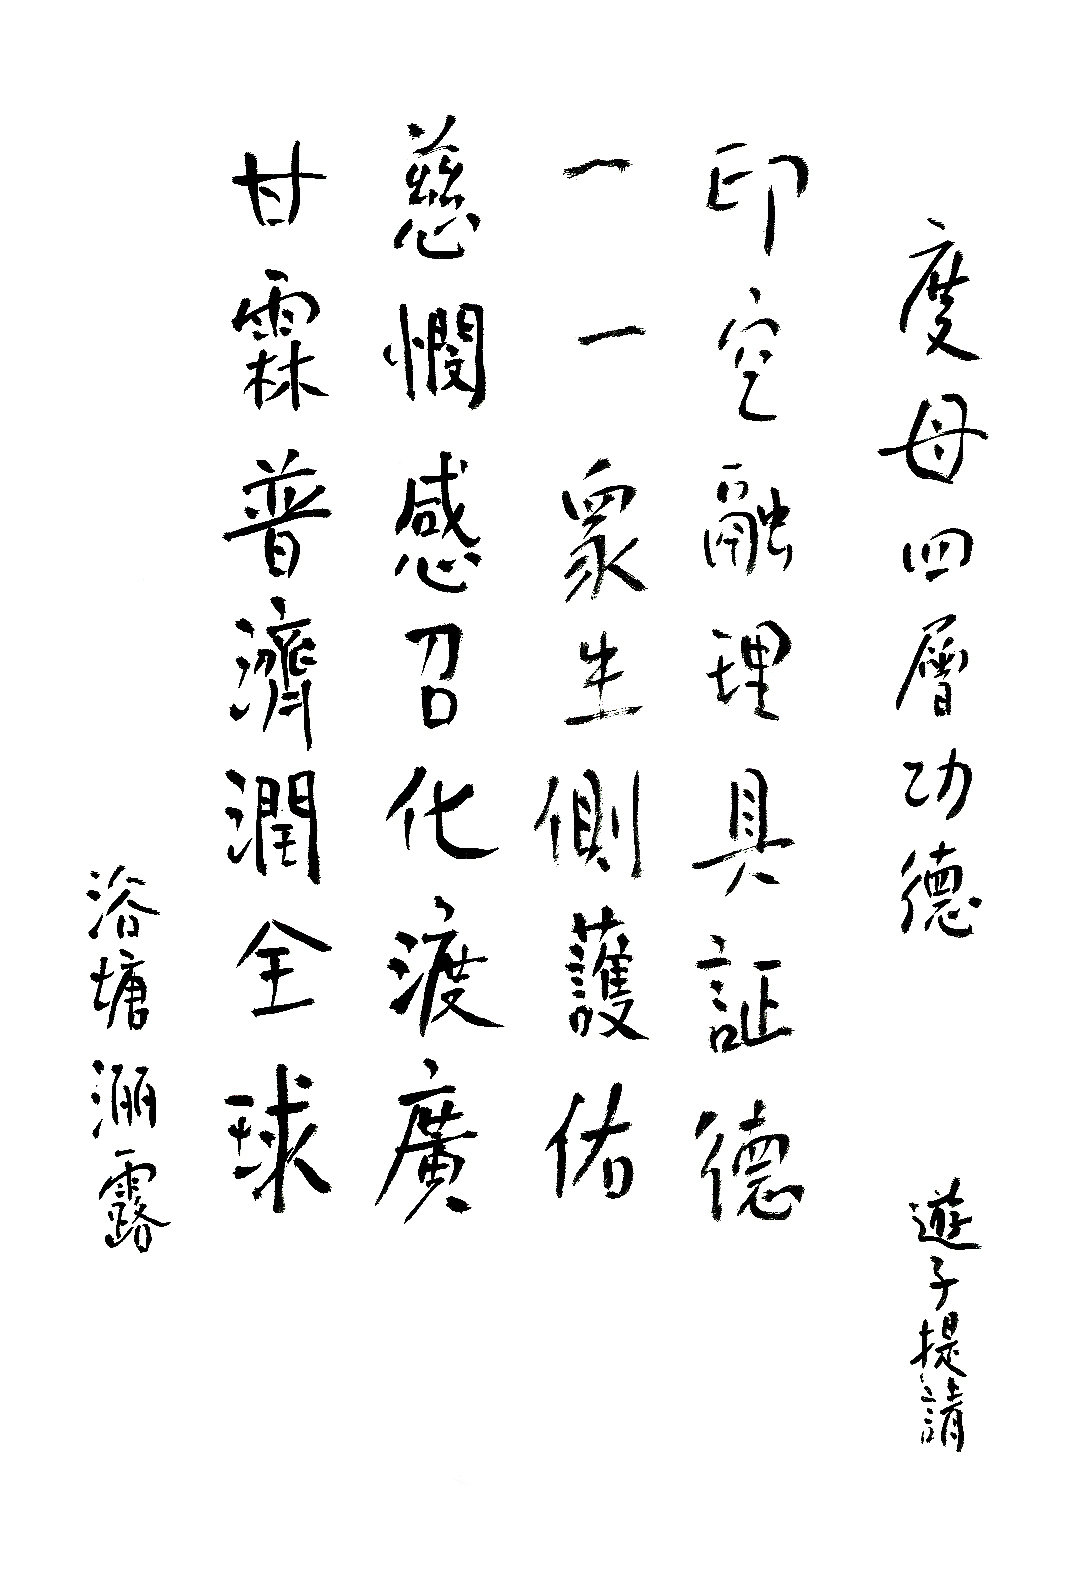 度母四層功德
遊子提請
印空融理具証德
一一眾生側護佑
慈憫感召化渡廣
甘霖普濟潤全球
浴塘灑露